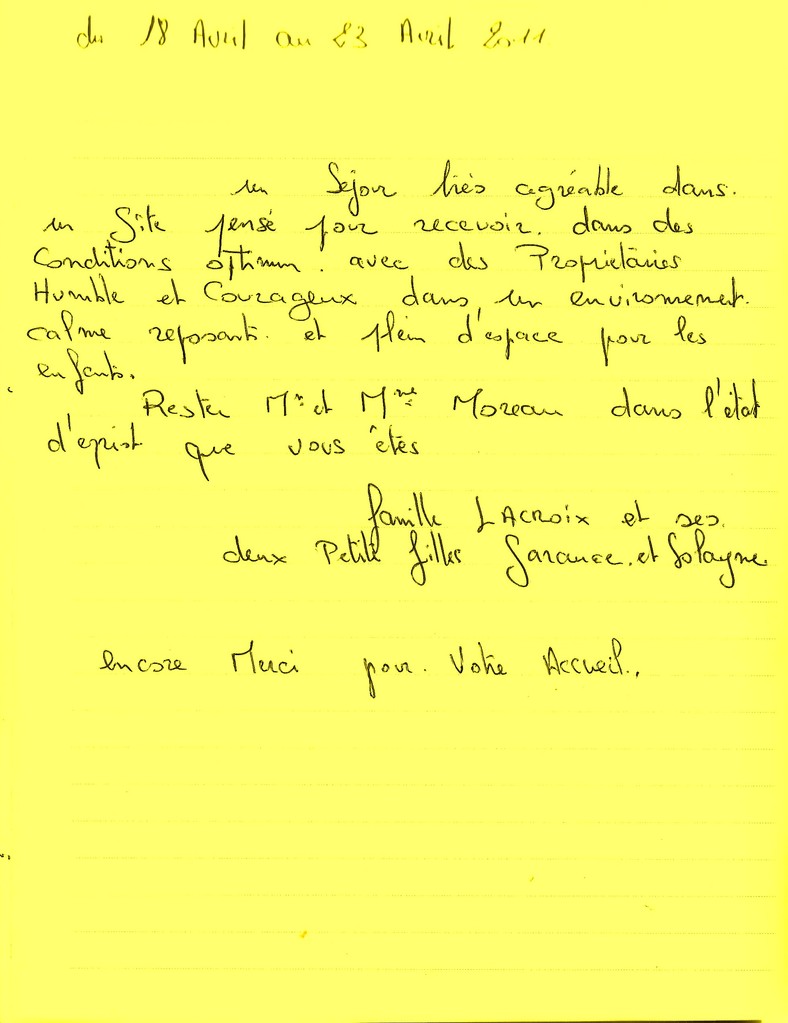 du 18 Avril au 23 Avril 2011
un Séjour très agréable dans.
un Site pensé pour recevoir. dans des
Conditions optimum. avec des Propriétaires
Humble et Courageux dans un environnement.
calme reposant. et plein d'espace pour les
enfants.
Rester Mr et Mme Moreau dans l'état
d'eprist que vous êtes
famille LACROIX et ses.
deux Petite filles Garance. et Solayne.
encore Merci pour. Votre Accueil.,